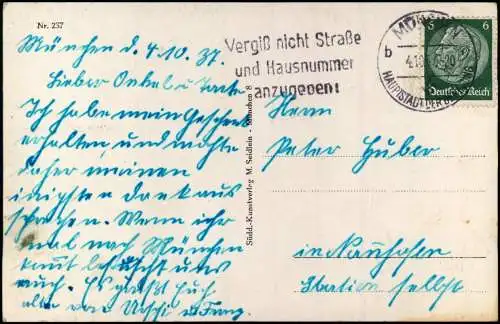 Nr. 257
München d. 4.10.37.
Lieber Onkel u. Tante.
Ich habe mein Geschenk
erhalten, und möchte
daher meinen
inigsten Dank aus
sprechen. Wenn ihr
mal nach München
kommt besucht uns
auch. Es grüßt Euch
alle von Uschi u Franz.
Südd.-Kunstverlag M. Seidlein - München 8
Vergiß nicht Straße
und Hausnummer
anzugeben!
MÜNCHEN
b
HAUPTSTADT DER BEWEGUNG
6
Deutsches Reich
Herrn
Peter Huber
in
Station selbst